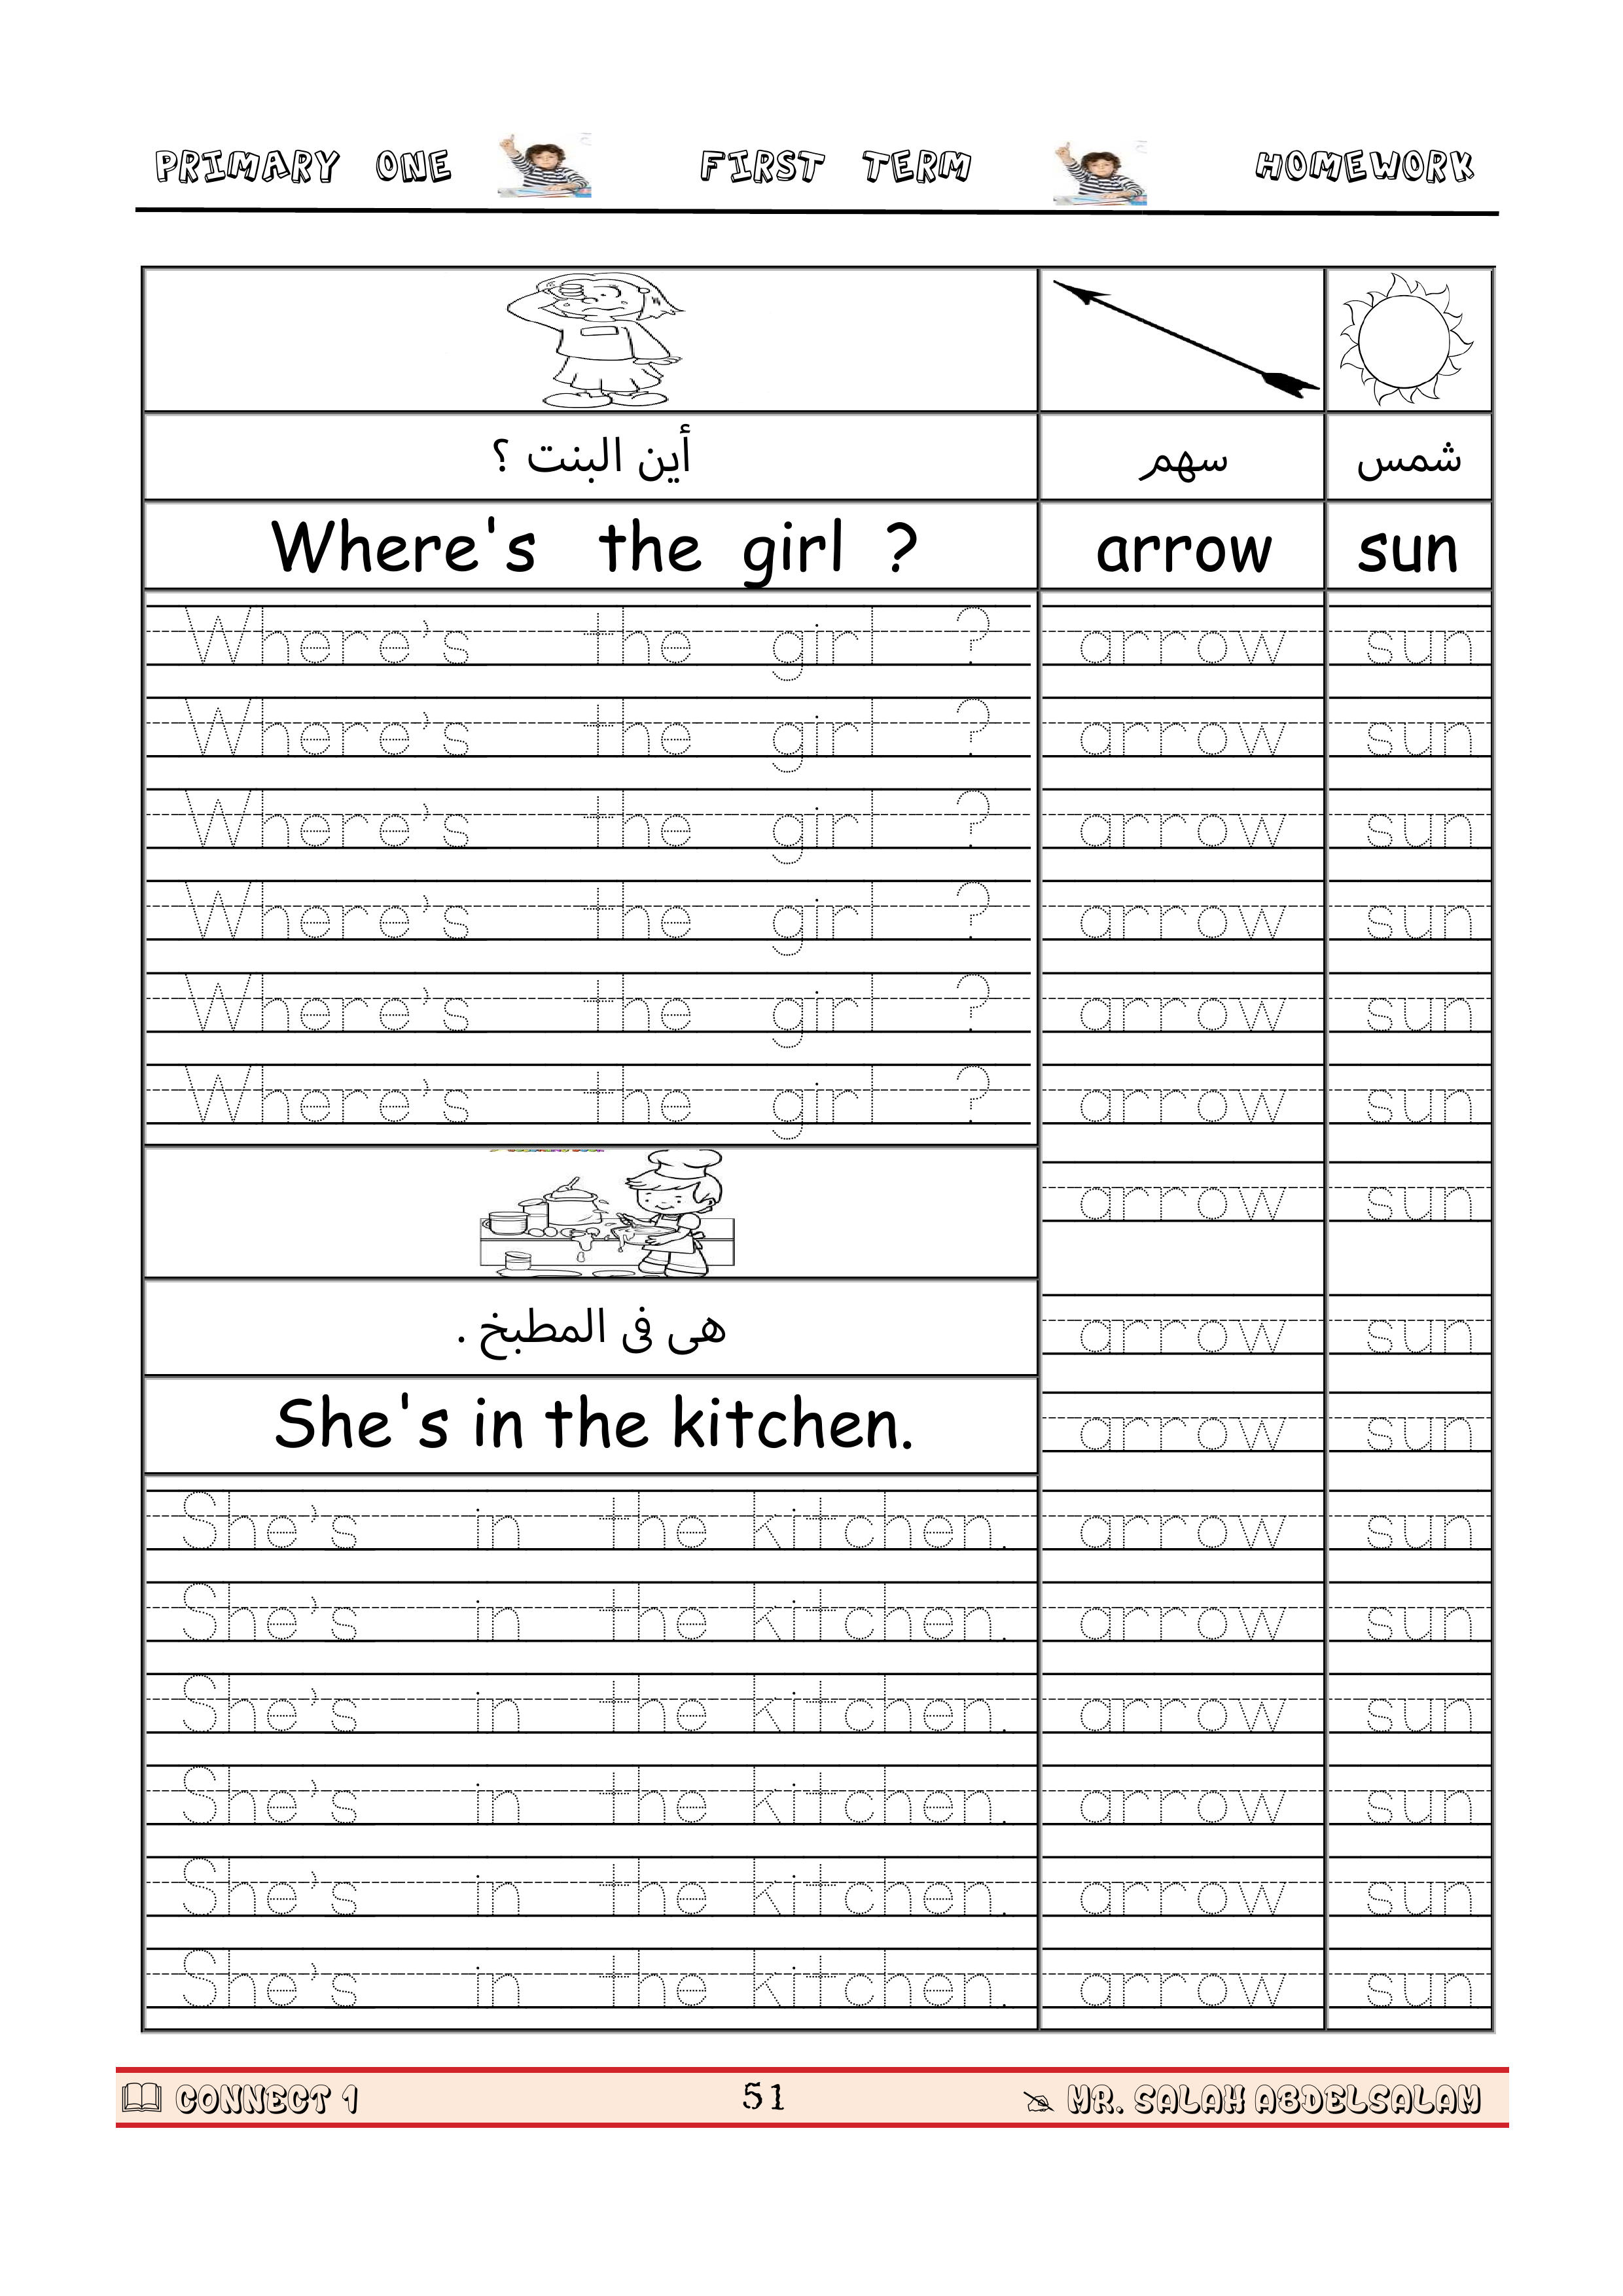 PRIMARY ONE FIRST TERM HOMEWORK
أين البنت ؟ سهم شمس
Where's the girl ? arrow sun
Where's the girl ? arrow sun
Where's the girl ? arrow sun
Where's the girl ? arrow sun
Where's the girl ? arrow sun
Where's the girl ? arrow sun
Where's the girl ? arrow sun
arrow sun
هى فى المطبخ .
arrow sun
She's in the kitchen.
arrow sun
She's in the kitchen. arrow sun
She's in the kitchen. arrow sun
She's in the kitchen. arrow sun
She's in the kitchen. arrow sun
She's in the kitchen. arrow sun
She's in the kitchen. arrow sun
CONNECT 1 51 MR. SALAH ABDELSALAM